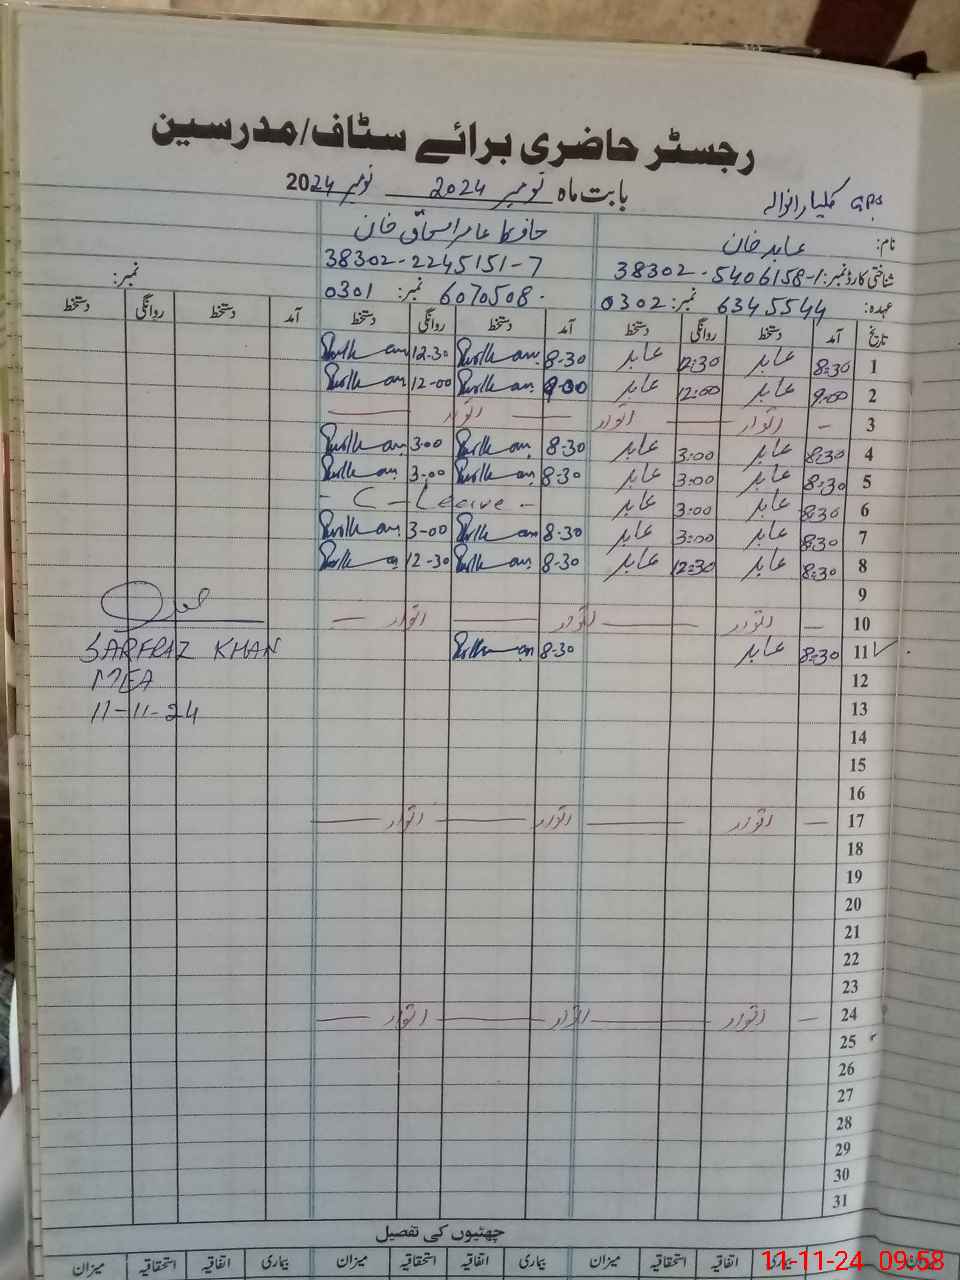 رجسٹر حاضری برائے سٹاف/مدرسین
بابت ماہ نومبر 2024 نومبر 2024
GPS
نام: عابد خان حافظ عامر اسحاق خان
شناختی کارڈ نمبر: 38302-5406158-1 38302-2245151-7 نمبر:
عہدہ: 0302 نمبر: 6345544 0301 نمبر: 6070508
تاریخ آمد دستخط روانگی دستخط آمد دستخط روانگی دستخط آمد دستخط روانگی دستخط
1 8:30 عابد 12:30 عابد 8-30 12-30
2 9:00 عابد 12:00 عابد 9-00 12-00
3 — اتوار — اتوار — اتوار —
4 8:30 عابد 3:00 عابد 8-30 3-00
5 8:30 عابد 3:00 عابد 8-30 3-00
6 8:30 عابد 3:00 عابد - C-Leave -
7 8:30 عابد 3:00 عابد 8-30 3-00
8 8:30 عابد 12:30 عابد 8-30 12-30
9
10 — اتوار — اتوار — اتوار —
11 8:30 عابد 8-30
SARFRAZ KHAN
12
MEA
13
11-11-24
14
15
16
17 — اتوار — اتوار — اتوار —
18
19
20
21
22
23
24 — اتوار — اتوار — اتوار —
25
26
27
28
29
30
31
چھٹیوں کی تفصیل
بیماری اتفاقیہ استحقاقیہ میزان بیماری اتفاقیہ استحقاقیہ میزان بیماری اتفاقیہ استحقاقیہ میزان
11-11-24 09:58